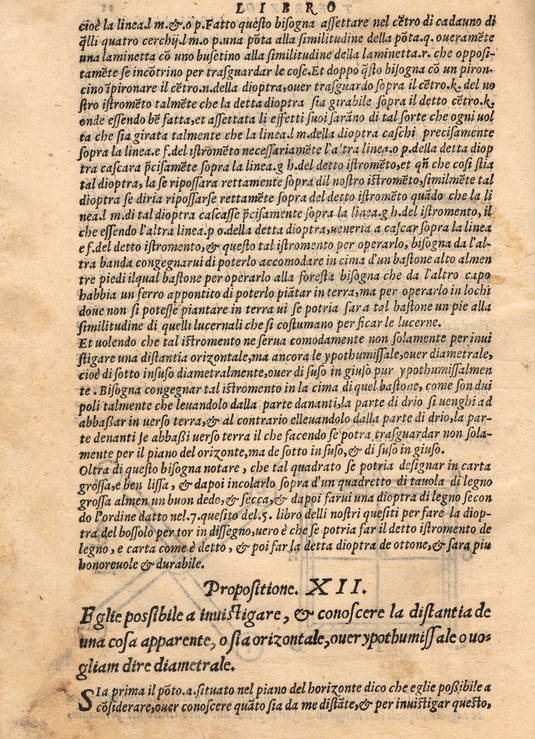 LIBRO
cioè la linea.l m.&.o p.Fatto questo bisogna assettare nel cẽtro di cadauno di
q̃lli quatro cerchij.l m.o p.una põta alla similitudine della põta.q.oueramẽte
una laminetta cõ uno busetino alla similitudine della laminetta.r. che opposi-
tamẽte se incõtrino per trasguardar le cose.Et doppo q̃sto bisogna cõ un piron-
cino ĩpironare il cẽtro.n.della dioptra,ouer trasguardo sopra il cẽtro.k. del no
stro istromẽto talmẽte che la detta dioptra sia girabile sopra il detto cẽtro.k.
onde essendo bẽ fatta,et assettata li effetti suoi sarãno di tal sorte che ogni uol
ta che sia girata talmente che la linea.l m.della dioptra caschi precisamente
sopra la linea.e f.del istromẽto necessariamẽte l'altra linea.o p.della detta diop
tra cascara p̃cisamẽte sopra la linea.g h.del detto istromẽto,et qñ che cosi stia
tal dioptra, la se ripossara rettamente sopra dil nostro istromẽto,similmẽte tal
dioptra se diria ripossarse rettamẽte sopra del detto istromẽto quãdo che la li
nea.l m.di tal dioptra cascasse p̃cisamente sopra la linea.g h.del istromento, il
che essendo l'altra linea.p o.della detta dioptra,ueneria a cascar sopra la linea
e f.del detto istromento,& questo tal istromento per operarlo, bisogna da l'al-
tra banda congegnarui di poterlo accomodare in cima d'un bastone alto almen
tre piedi ilqual bastone per operarlo alla foresta bisogna che da l'altro capo
habbia un ferro appontito di poterlo piãtar in terra,ma per operarlo in lochi
doue non si potesse piantare in terra ui se potria far a tal bastone un pie alla
similitudine di quelli lucernali che si costumano per ficar le lucerne.
Et uolendo che tal istromẽto ne serua comodamente non solamente per inui
stigare una distantia orizontale,ma ancora le ypothumissale,ouer diametrale,
cioè di sotto insuso diametralmente,ouer di suso in giuso pur ypothumissalmen
te . Bisogna congegnar tal istromento in la cima di quel bastone, come son dui
poli talmente che leuandolo dalla parte dananti,la parte di drio si uenghi ad
abbassar in uerso terra,& al contrario elleuandolo dalla parte di drio, la par-
te denanti se abbassi uerso terra il che facendo se potra trasguardar non sola-
mente per il piano del orizonte,ma de sotto in suso,& di suso in giuso.
Oltra di questo bisogna notare , che tal quadrato se potria designar in carta
grossa,e ben lissa, & dapoi incolarlo sopra d'un quadretto di tauola di legno
grossa almen un buon dedo,& secca,& dapoi farui una dioptra di legno secon
do l'ordine datto nel.7.quesito del.5. libro delli nostri quesiti per fare la diop-
tra del bossolo per tor in dissegno,uero è che se potria far il detto istromento de
legno, e carta come è detto, & poi far la detta dioptra de ottone,& sara piu
honoreuole & durabile.
Propositione. XII.
Eglie possibile a inuistigare, & conoscere la distantia de
una cosa apparente, o sia orizontale,ouer ypothumissale o uo-
gliam dire diametrale.
SIa prima il põto.a.situato nel piano del horizonte dico che eglie possibile a
cõsiderare,ouer conoscere quãto sia da me distãte,& per inuistigar questo,